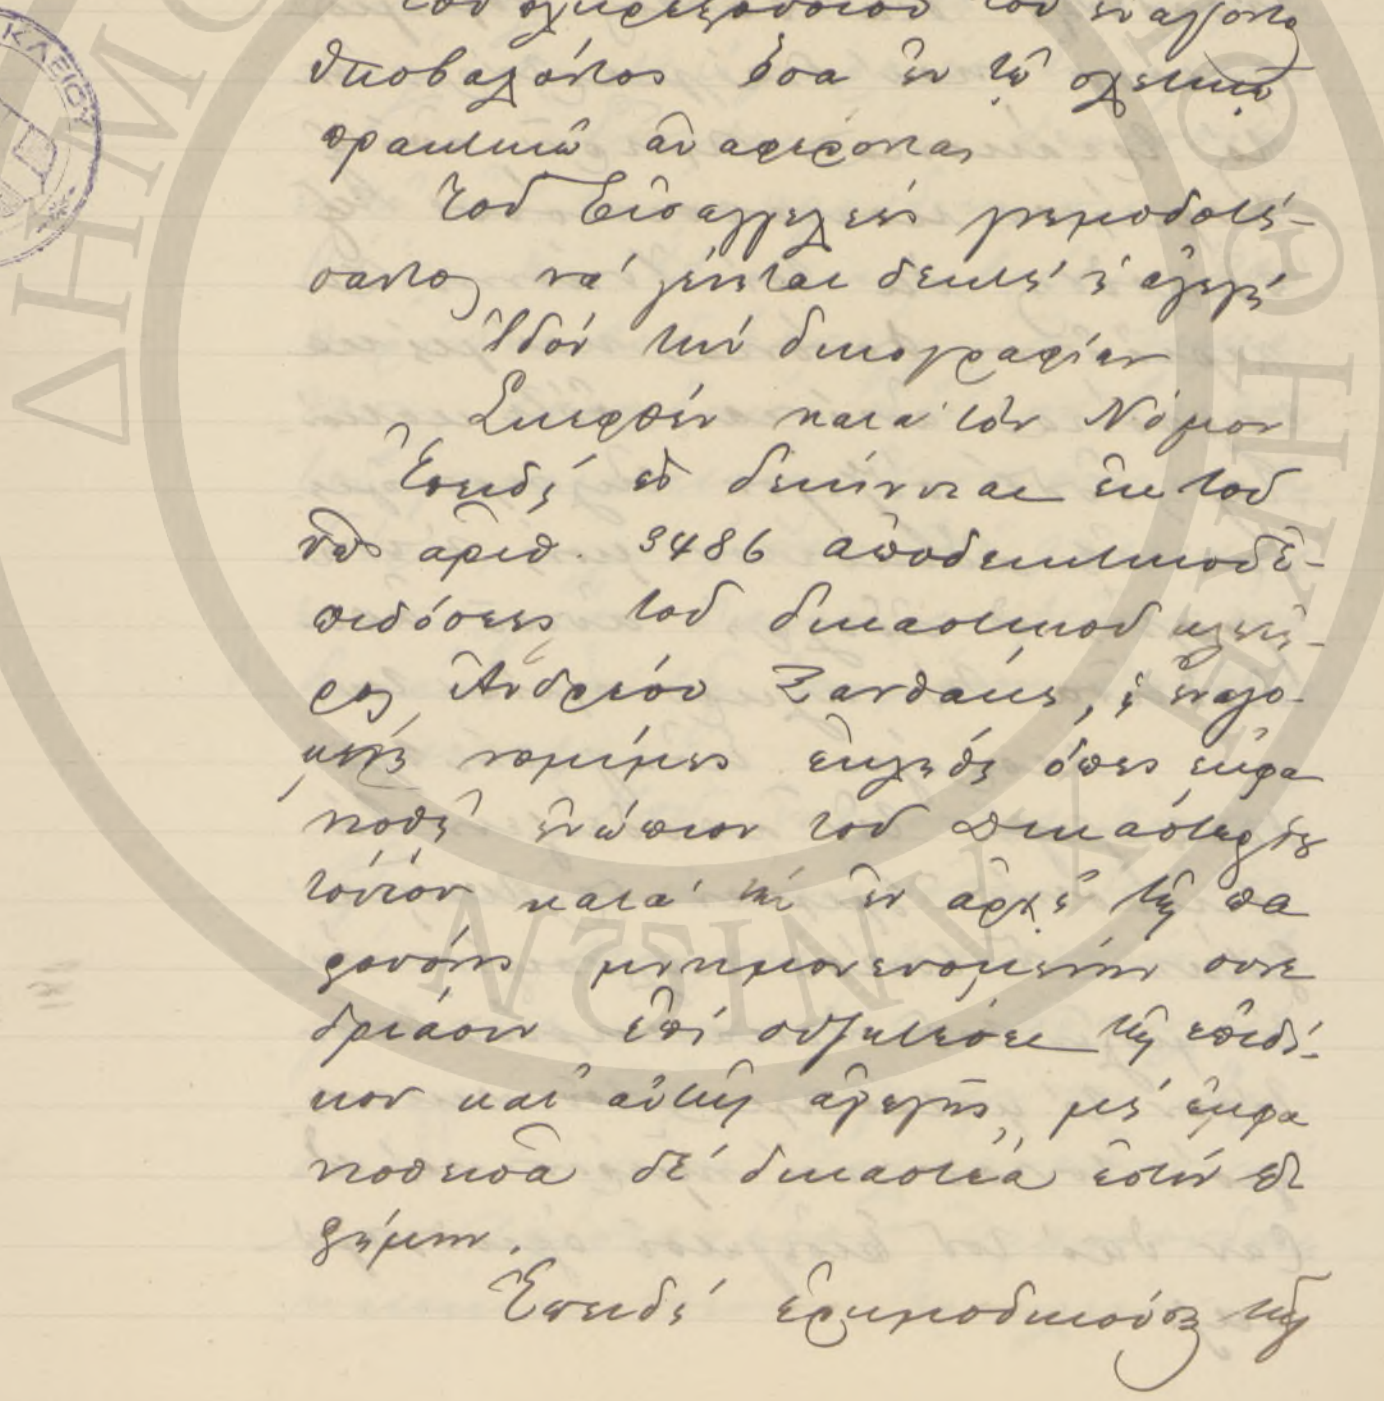 τοῦ πληρεξουσίου τοῦ ἐνάγοντος
ὑποβαλόντος ὅσα ἐν τῷ σχετικῷ
πρακτικῷ ἀναφέρονται
Τοῦ Εἰσαγγελέως γνωμοδοτή-
σαντος νά γένηται δεκτή ἡ ἀγωγή
Ἰδόν τήν δικογραφίαν
Σκεφθέν κατά τόν Νόμον
Ἐπειδή ὡς δείκνυται ἐκ τοῦ
ὑπ' ἀριθ. 3486 ἀποδεικτικοῦ ἐ-
πιδόσεως τοῦ δικαστικοῦ κλητῆ-
ρος Ἀνδρέου Ξανθάκη, ἡ ἐναγο-
μένη νομίμως ἐκλήθη ὅπως ἐμφα
νισθῇ ἐνώπιον τοῦ Δικαστηρίου
τούτου κατά τήν ἐν ἀρχῇ τῆς πα
ρούσης μνημονευομένην συνε
δρίασιν ἐπί συζητήσει τῆς ἐπιδί-
κου κατ' αὐτῆς ἀγωγῆς, μή ἐμφα
νισθεῖσα δέ δικαστέα ἐστίν ἐ
ρήμην.
Ἐπειδή ἐρημοδικούσης τῆς
ΔΗΜΟ ΙΟΘΗΚΗ ΒΙΚΕΛΑΙΑ
ΚΛΕΙΟΥ